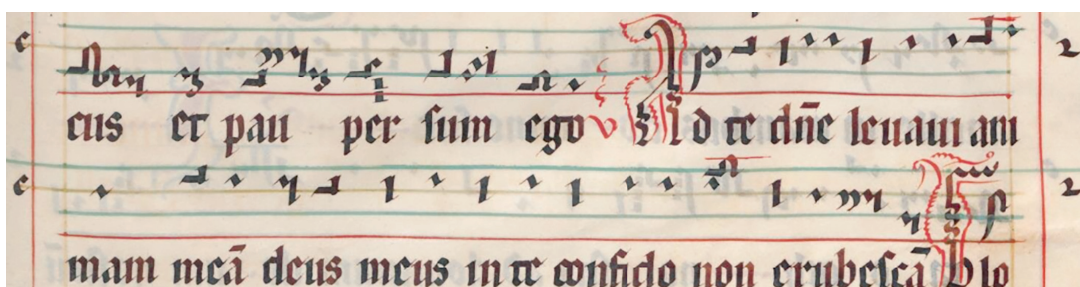 cus et pau per sum ego v Ad te dn̄e leuaui am
mam meā deus meus in te confido non erubescā Glo